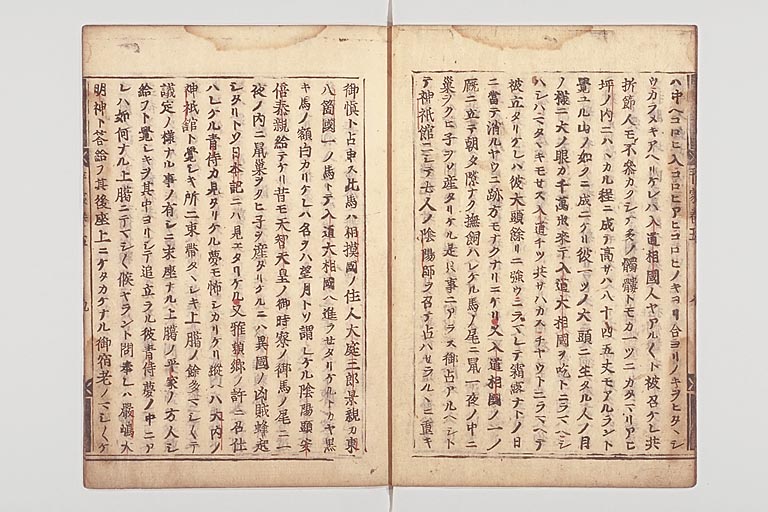 ハ中ヘコロヒ入コロヒアヒコロヒノキヨリ合ヨリノキヲヒタヽシ
ウカラメキアヘリケレハ入道相國人ヤアル〱ト被召ケレ共
折節人モ不参カヽシテ多ノ髑髏トモカ一ツニカタマリアヒ
坪ノ内ニハヽカル程ニ成テ高サハ八十四五丈モアルラント
覺ユル山ノ如クニ成ニケリ彼一ツノ大頭ニ生タル人ノ目
ノ様ニ大ノ眼カ千萬出来テ入道大相國ヲ吃トニラマヘシ
ハシハマタヽキモセス入道チツ共サハカスチヤウトニラマヘテ
被立タリケレハ彼大頭餘リニ強ウニラマレテ霜露ナトノ日
ニ當テ消ルヤウニ跡方モナクナリニケリ又入道相國ノ一ノ
厩ニ立テ朝タ隙ナク撫飼ハレケル馬ノ尾ニ鼠一夜ノ中ニ
巣ヲクヒ子ヲソ産タリケル是只事ニアラス御占アルヘシト
テ神祇館ニシテ七人ノ陰陽師ヲ召テ占ハセラルヽニ重キ
御愼ト占申ス此馬ハ相摸國ノ住人大庭三郎景親カ東
八箇國一ノ馬トテ入道大相國ヘ進ラセタリケルトカヤ黒
キ馬ノ額白カリケレハ名ヲハ望月トソ謂レケル陰陽頭安
倍泰親給テケリ昔モ天智天皇ノ御時寮ノ御馬ノ尾ニ一
夜ノ内ニ鼠巣ヲクヒ子ヲ産タリケルニハ異國ノ凶賊蜂起
シタリトソ日本記ニハ見エタリケル又雅頼卿ノ許ニ召仕
ハレケル青侍カ見タリケル夢モ怖シカリケリ縦ハ大内ノ
神祇館ト覺シキ所ニ束帶タヽシキ上臈ノ餘多マシ〱テ
議定ノ様ナル事ノ有シニ末座ナル上臈ノ平家ノ方人シ
給フト覺シキヲ其中ヨリシテ追立ラル彼青侍夢ノ中ニア
レハ如何ナル上臈ニテマシ〱候ヤラント問奉レハ嚴嶋大
明神ト荅給フ其後座上ニケタカケナル御宿老ノマシ〱ケ